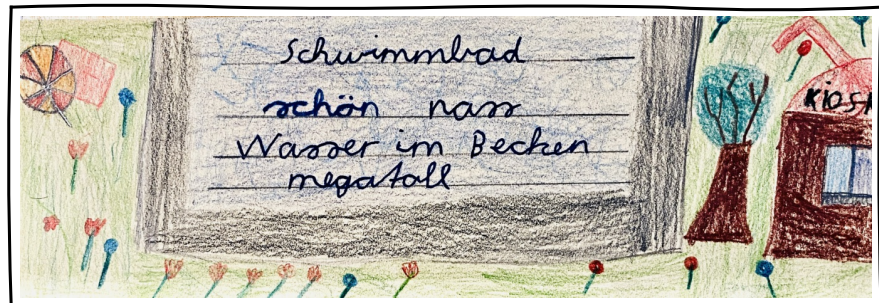 Schwimmbad
schön nass
Wasser im Becken
megatoll
Kiosk